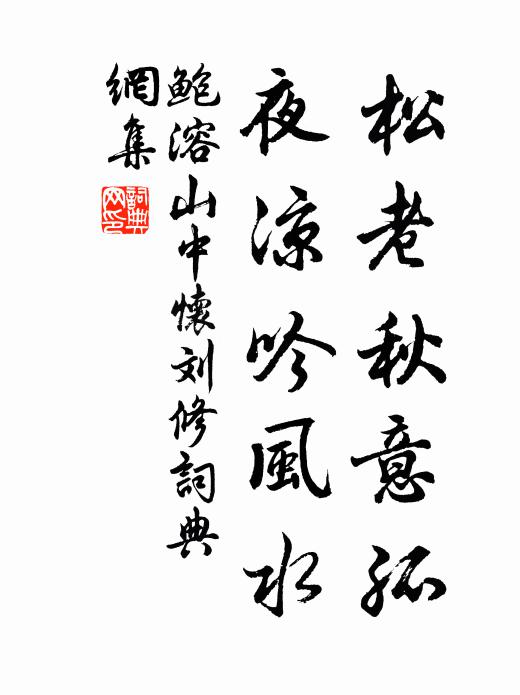 松老秋意孤
夜涼吟風水
鲍溶山中懷刘修詞典
網集
詞典網印